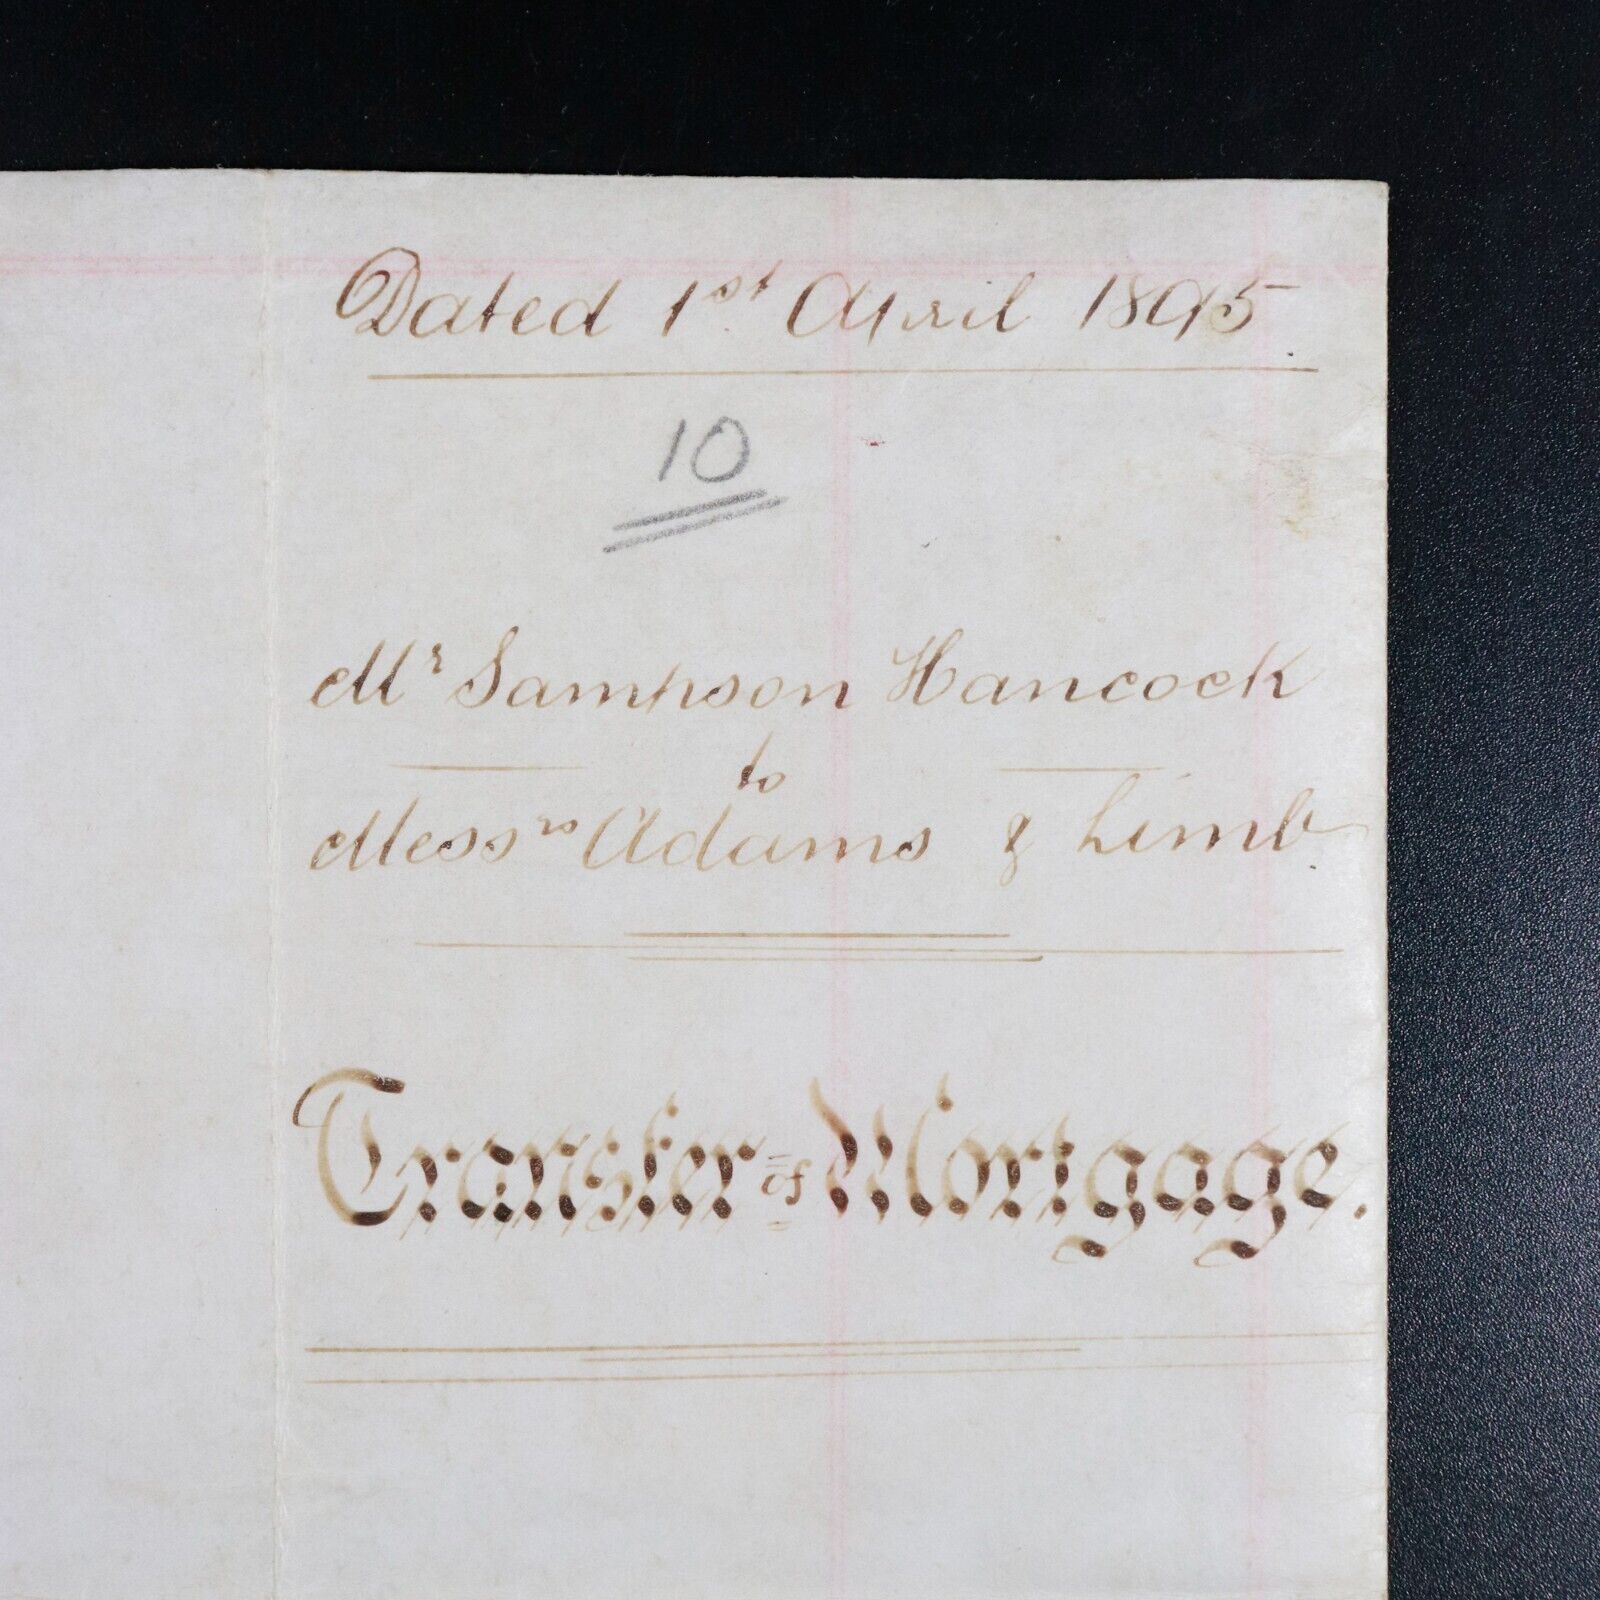 Dated 1st April 1895
10
Mr Sampson Hancock
to
Messrs Adams & Limb
Transfer of Mortgage.